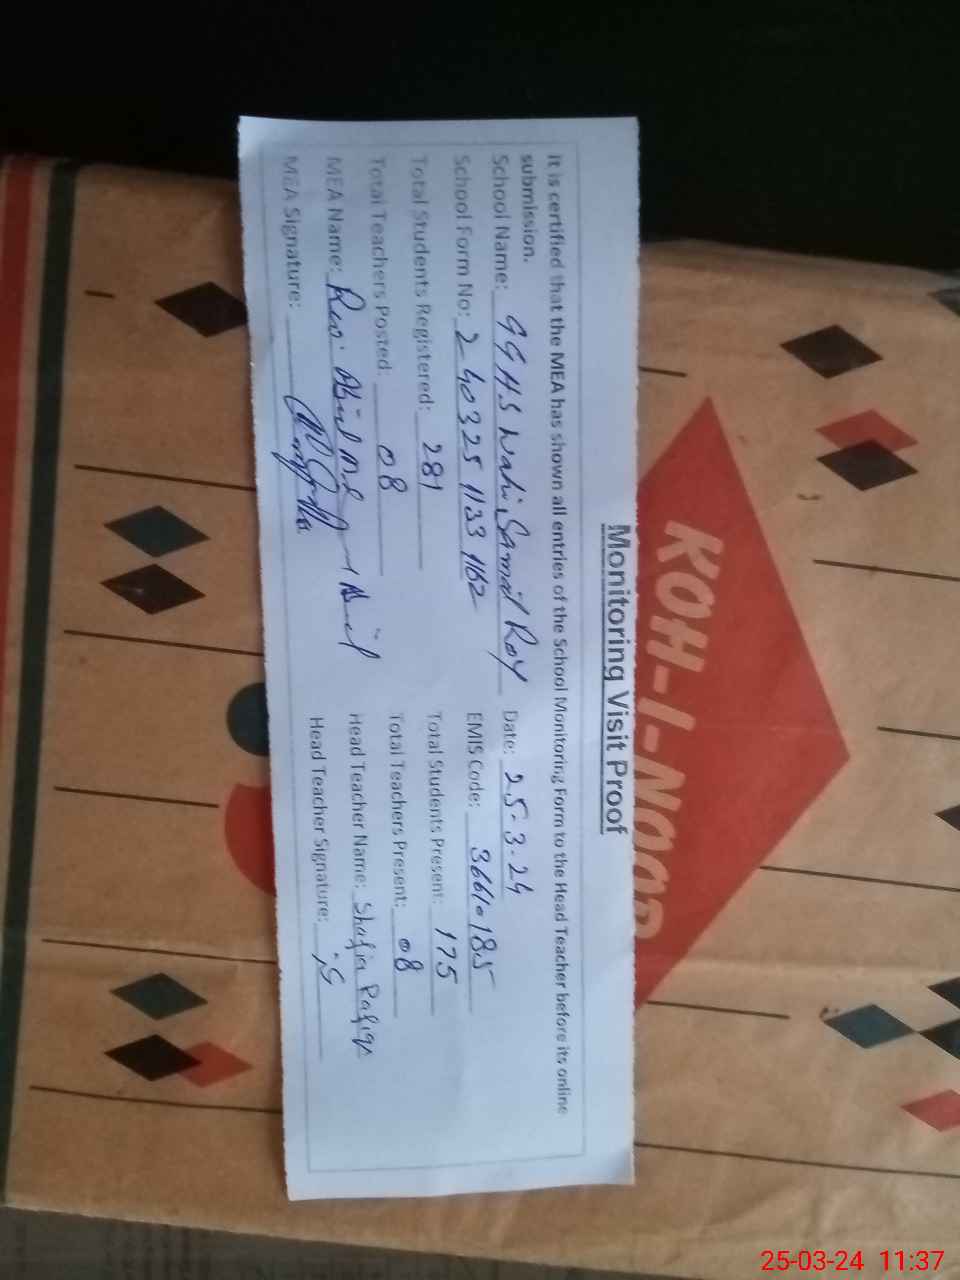 Monitoring Visit Proof
It is certified that the MEA has shown all entries of the School Monitoring Form to the Head Teacher before its online
submission.
School Name: GGHS Wahi Samail Roy Date: 25-3-24
School Form No: 2403251133 1162 EMIS Code: 36610185
Total Students Registered: 281 Total Students Present: 175
Total Teachers Posted: 08 Total Teachers Present: 08
MEA Name: Head Teacher Name: Shafia Rafiq
MEA Signature: Head Teacher Signature:
KOH-I-NOOR
25-03-24 11:37